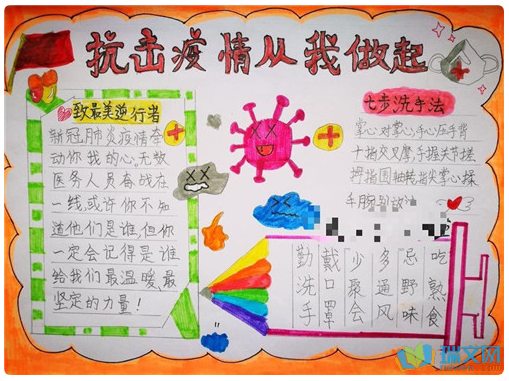 抗击疫情从我做起
致最美逆行者
新冠肺炎疫情牵
动你我的心。无数
医务人员奋战在
一线或许你不知
道他们是谁但你
一定会记得是谁
给我们最温暖最
坚定的力量！
七步洗手法
掌心对掌心手心压手背
十指交叉摩手握关节搓
拇指围轴转指尖掌心揉
手腕别放
吃熟食
忌野味
多通风
少聚会
戴口罩
勤洗手
瑞文网